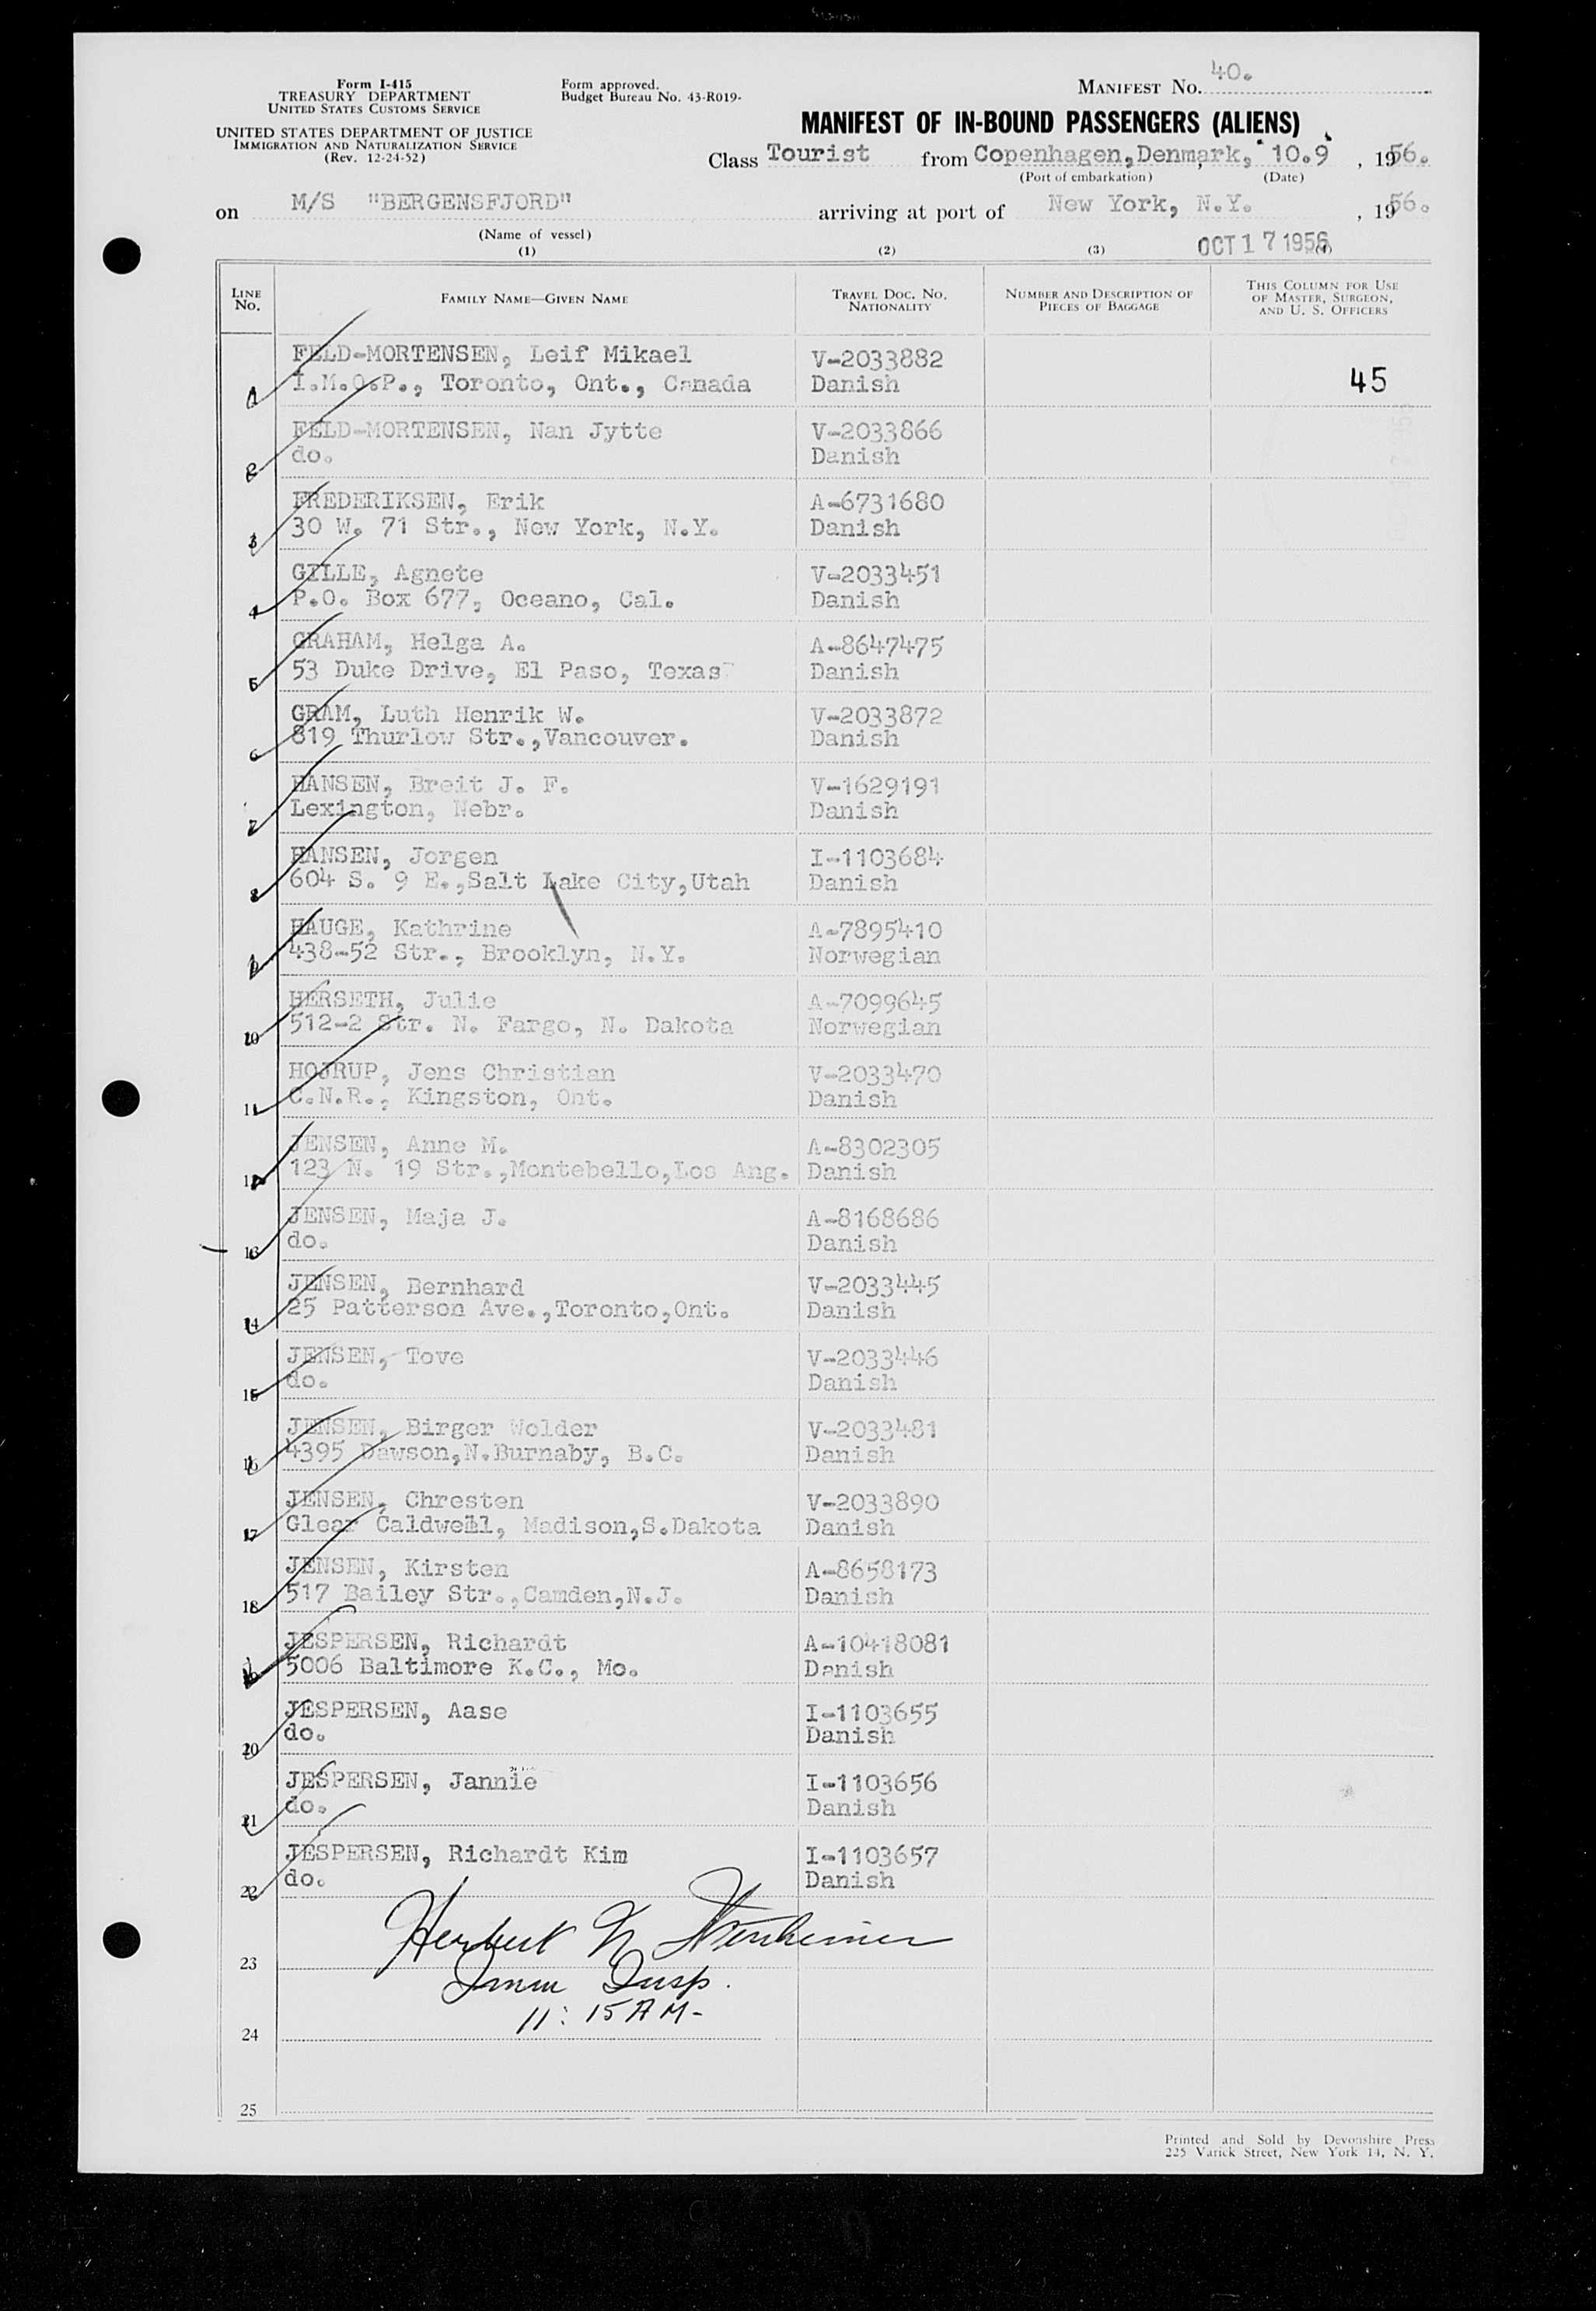 Form I-415
TREASURY DEPARTMENT
UNITED STATES CUSTOMS SERVICE
UNITED STATES DEPARTMENT OF JUSTICE
IMMIGRATION AND NATURALIZATION SERVICE
(Rev. 12-24-52)
Form approved.
Budget Bureau No. 43-R019-
MANIFEST NO. 40.
MANIFEST OF IN-BOUND PASSENGERS (ALIENS)
Class Tourist from Copenhagen, Denmark, 10.9, 1956.
(Port of embarkation) (Date)
on M/S "BERGENSFJORD" arriving at port of New York, N.Y., 1956.
(Name of vessel)
OCT 17 1956
(1) (2) (3) (4)
LINE NO. FAMILY NAME—GIVEN NAME TRAVEL DOC. NO. NATIONALITY NUMBER AND DESCRIPTION OF PIECES OF BAGGAGE THIS COLUMN FOR USE OF MASTER, SURGEON, AND U. S. OFFICERS
FELD-MORTENSEN, Leif Mikael V-2033882
1 I.M.O.P., Toronto, Ont., Canada Danish 45
FELD-MORTENSEN, Nan Jytte V-2033866
2 do. Danish
FREDERIKSEN, Erik A-6731680
3 30 W. 71 Str., New York, N.Y. Danish
GILLE, Agnete V-2033451
4 P.O. Box 677, Oceano, Cal. Danish
GRAHAM, Helga A. A-8647475
5 53 Duke Drive, El Paso, Texas Danish
GRAM, Luth Henrik W. V-2033872
6 819 Thurlow Str.,Vancouver. Danish
HANSEN, Breit J. F. V-1629191
7 Lexington, Nebr. Danish
HANSEN, Jorgen I-1103684
8 604 S. 9 E.,Salt Lake City,Utah Danish
HAUGE, Kathrine A-7895410
9 438-52 Str., Brooklyn, N.Y. Norwegian
HERSETH, Julie A-7099645
10 512-2 Str. N. Fargo, N. Dakota Norwegian
HOJRUP, Jens Christian V-2033470
11 C.N.R., Kingston, Ont. Danish
JENSEN, Anne M. A-8302305
12 123 N. 19 Str.,Montebello,Los Ang. Danish
JENSEN, Maja J. A-8168686
13 do. Danish
JENSEN, Bernhard V-2033445
14 25 Patterson Ave.,Toronto,Ont. Danish
JENSEN, Tove V-2033446
15 do. Danish
JENSEN, Birger Wolder V-2033481
16 4395 Dawson,N.Burnaby, B.C. Danish
JENSEN, Chresten V-2033890
17 Glear Caldwell, Madison,S.Dakota Danish
JENSEN, Kirsten A-8658173
18 517 Bailey Str.,Camden,N.J. Danish
JESPERSEN, Richardt A-10418081
19 5006 Baltimore K.C., Mo. Danish
JESPERSEN, Aase I-1103655
20 do. Danish
JESPERSEN, Jannie I-1103656
21 do. Danish
JESPERSEN, Richardt Kim I-1103657
22 do. Danish
Herbert N
23
Imm Insp.
11:15 AM-
24
25
Printed and Sold by Devonshire Press
225 Varick Street, New York 14, N. Y.